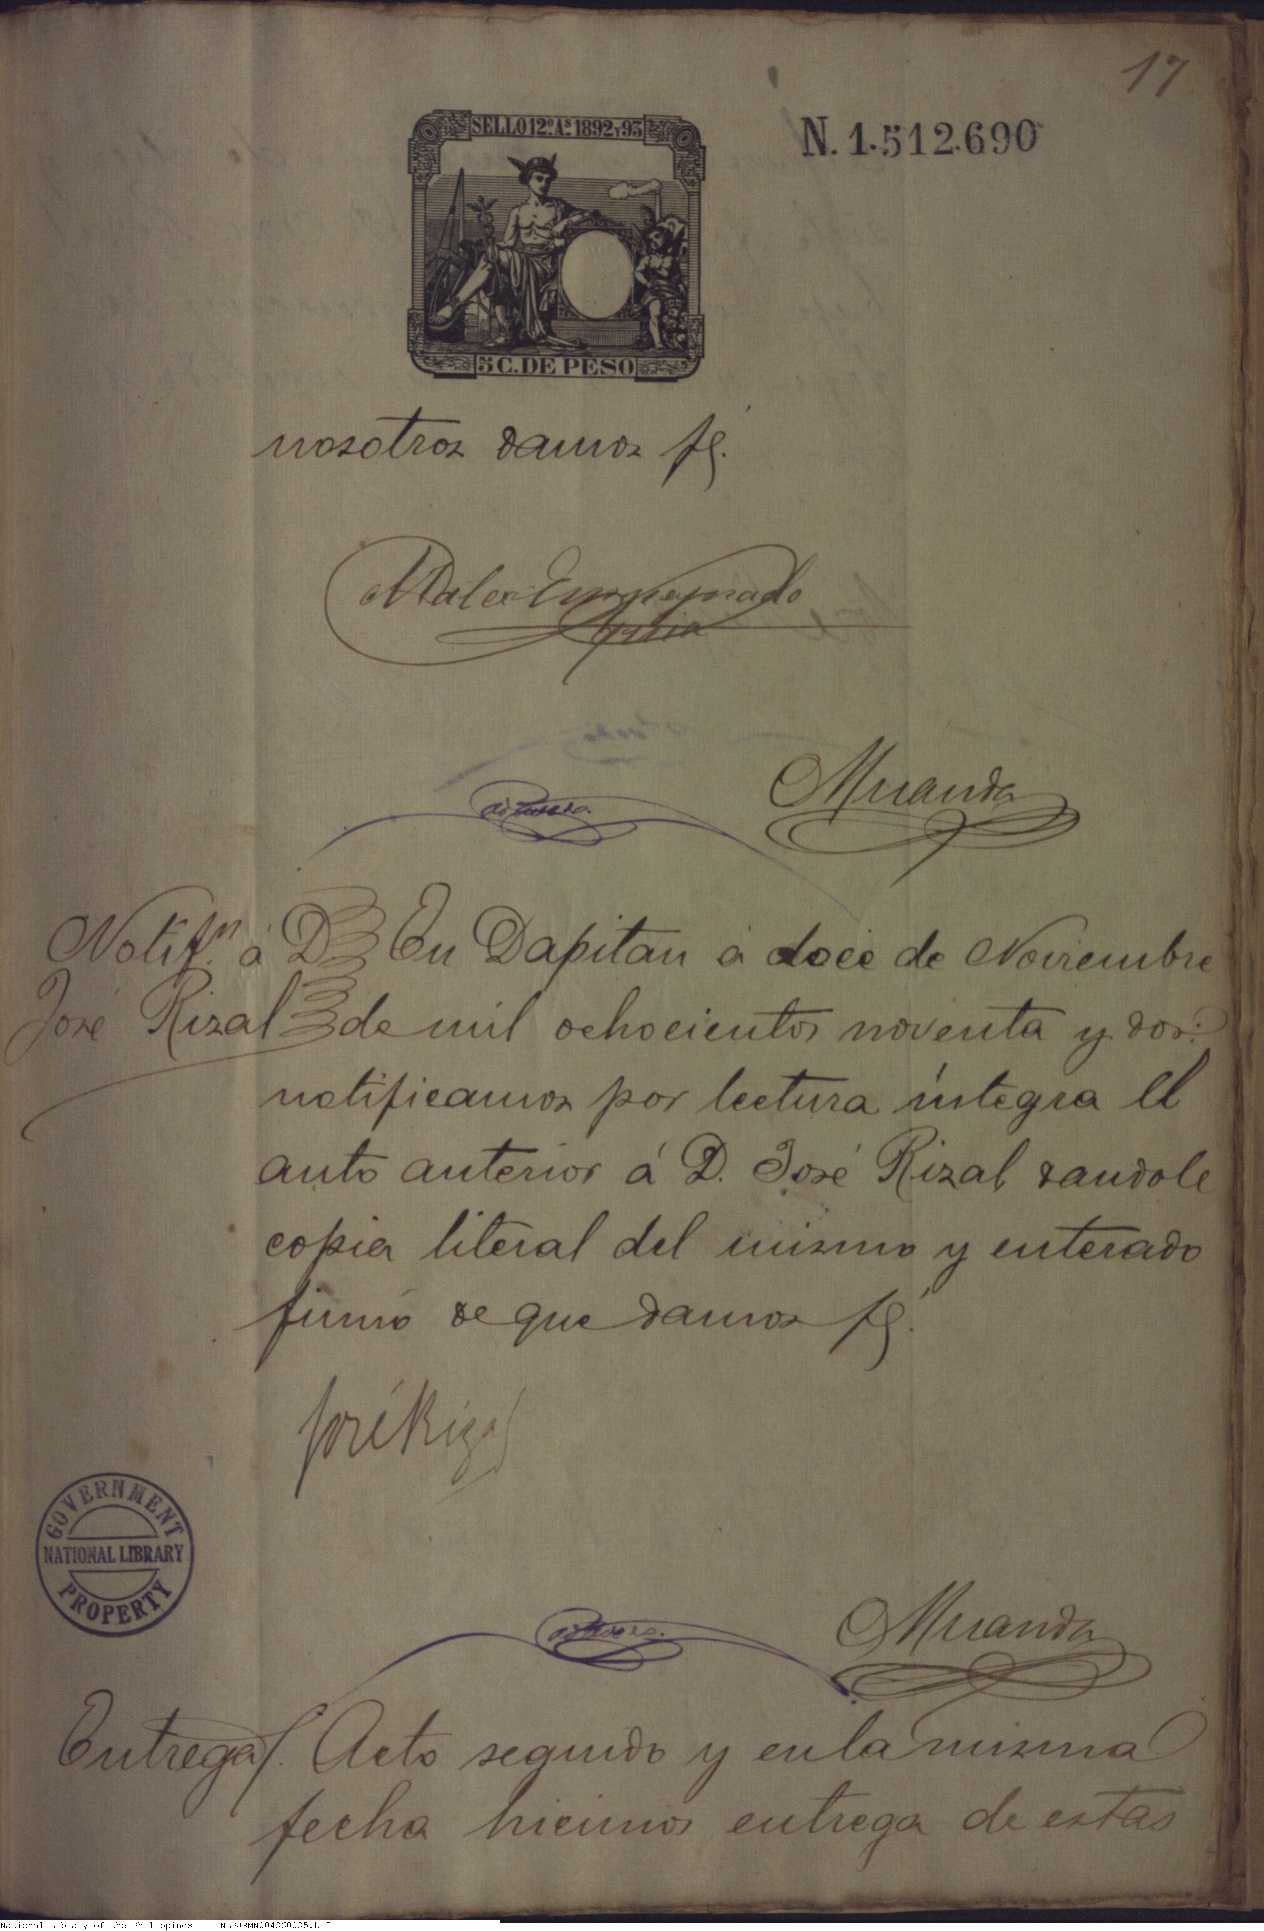 17
SELLO 12º As. 1892 Y 93
N. 1.512.690
5 C. DE PESO
nosotros damos fé.
Miranda
Notifn. á D. En Dapitan á doce de Noviembre
José Rizal de mil ochocientos noventa y dos:
notificamos por lectura íntegra el
auto anterior á D. José Rizal, dandole
copia literal del mismo y enterado
firmó de que damos fé.
José Rizal
GOVERNMENT
NATIONAL LIBRARY
PROPERTY
Miranda
Entrega/. Acto seguido y en la misma
fecha hicimos entrega de estas
National Library of the Philippines